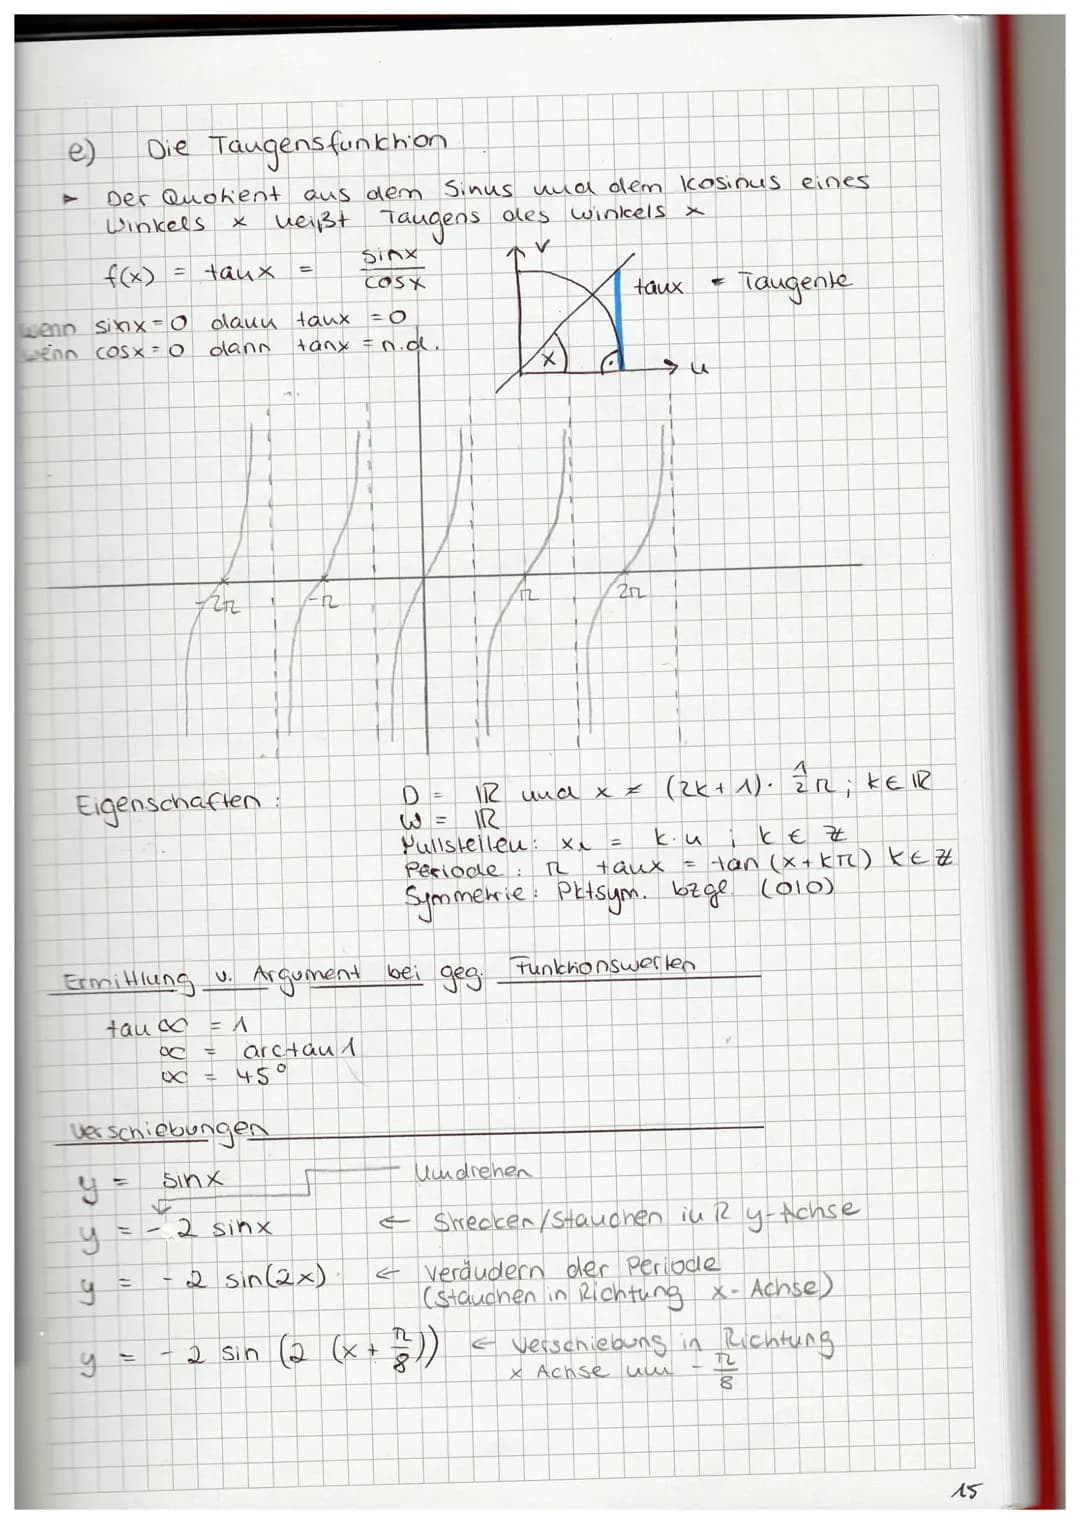 e) Die Tangensfunktion
► Der Quotient aus dem Sinus und dem Kosinus eines
Winkels x heißt Tangens des Winkels x
f(x) = tanx = sinx/cosx
v
tanx = Tangente
wenn sinx=0 dann tanx =0
wenn cosx=0 dann tanx = n.d.
x
u
-2π -π π 2π
Eigenschaften : D = ℝ und x ≠ (2k+1)· 1/2 π ; k∈ℝ
W = ℝ
Nullstellen: xk = k·π ; k ∈ ℤ
Periode : π tanx = tan(x+kπ) k∈ℤ
Symmetrie: Pktsym. bzgl. (0|0)
Ermittlung v. Argument bei geg. Funktionswerten
tan α = 1
α = arctan 1
α = 45°
Verschiebungen
y = sinx Umdrehen
y = -2 sinx ← Strecken/Stauchen in R y-Achse
y = -2 sin(2x) ← Verändern der Periode
(Stauchen in Richtung x-Achse)
y = -2 sin (2 (x+π/8)) ← Verschiebung in Richtung
x Achse um -π/8
15